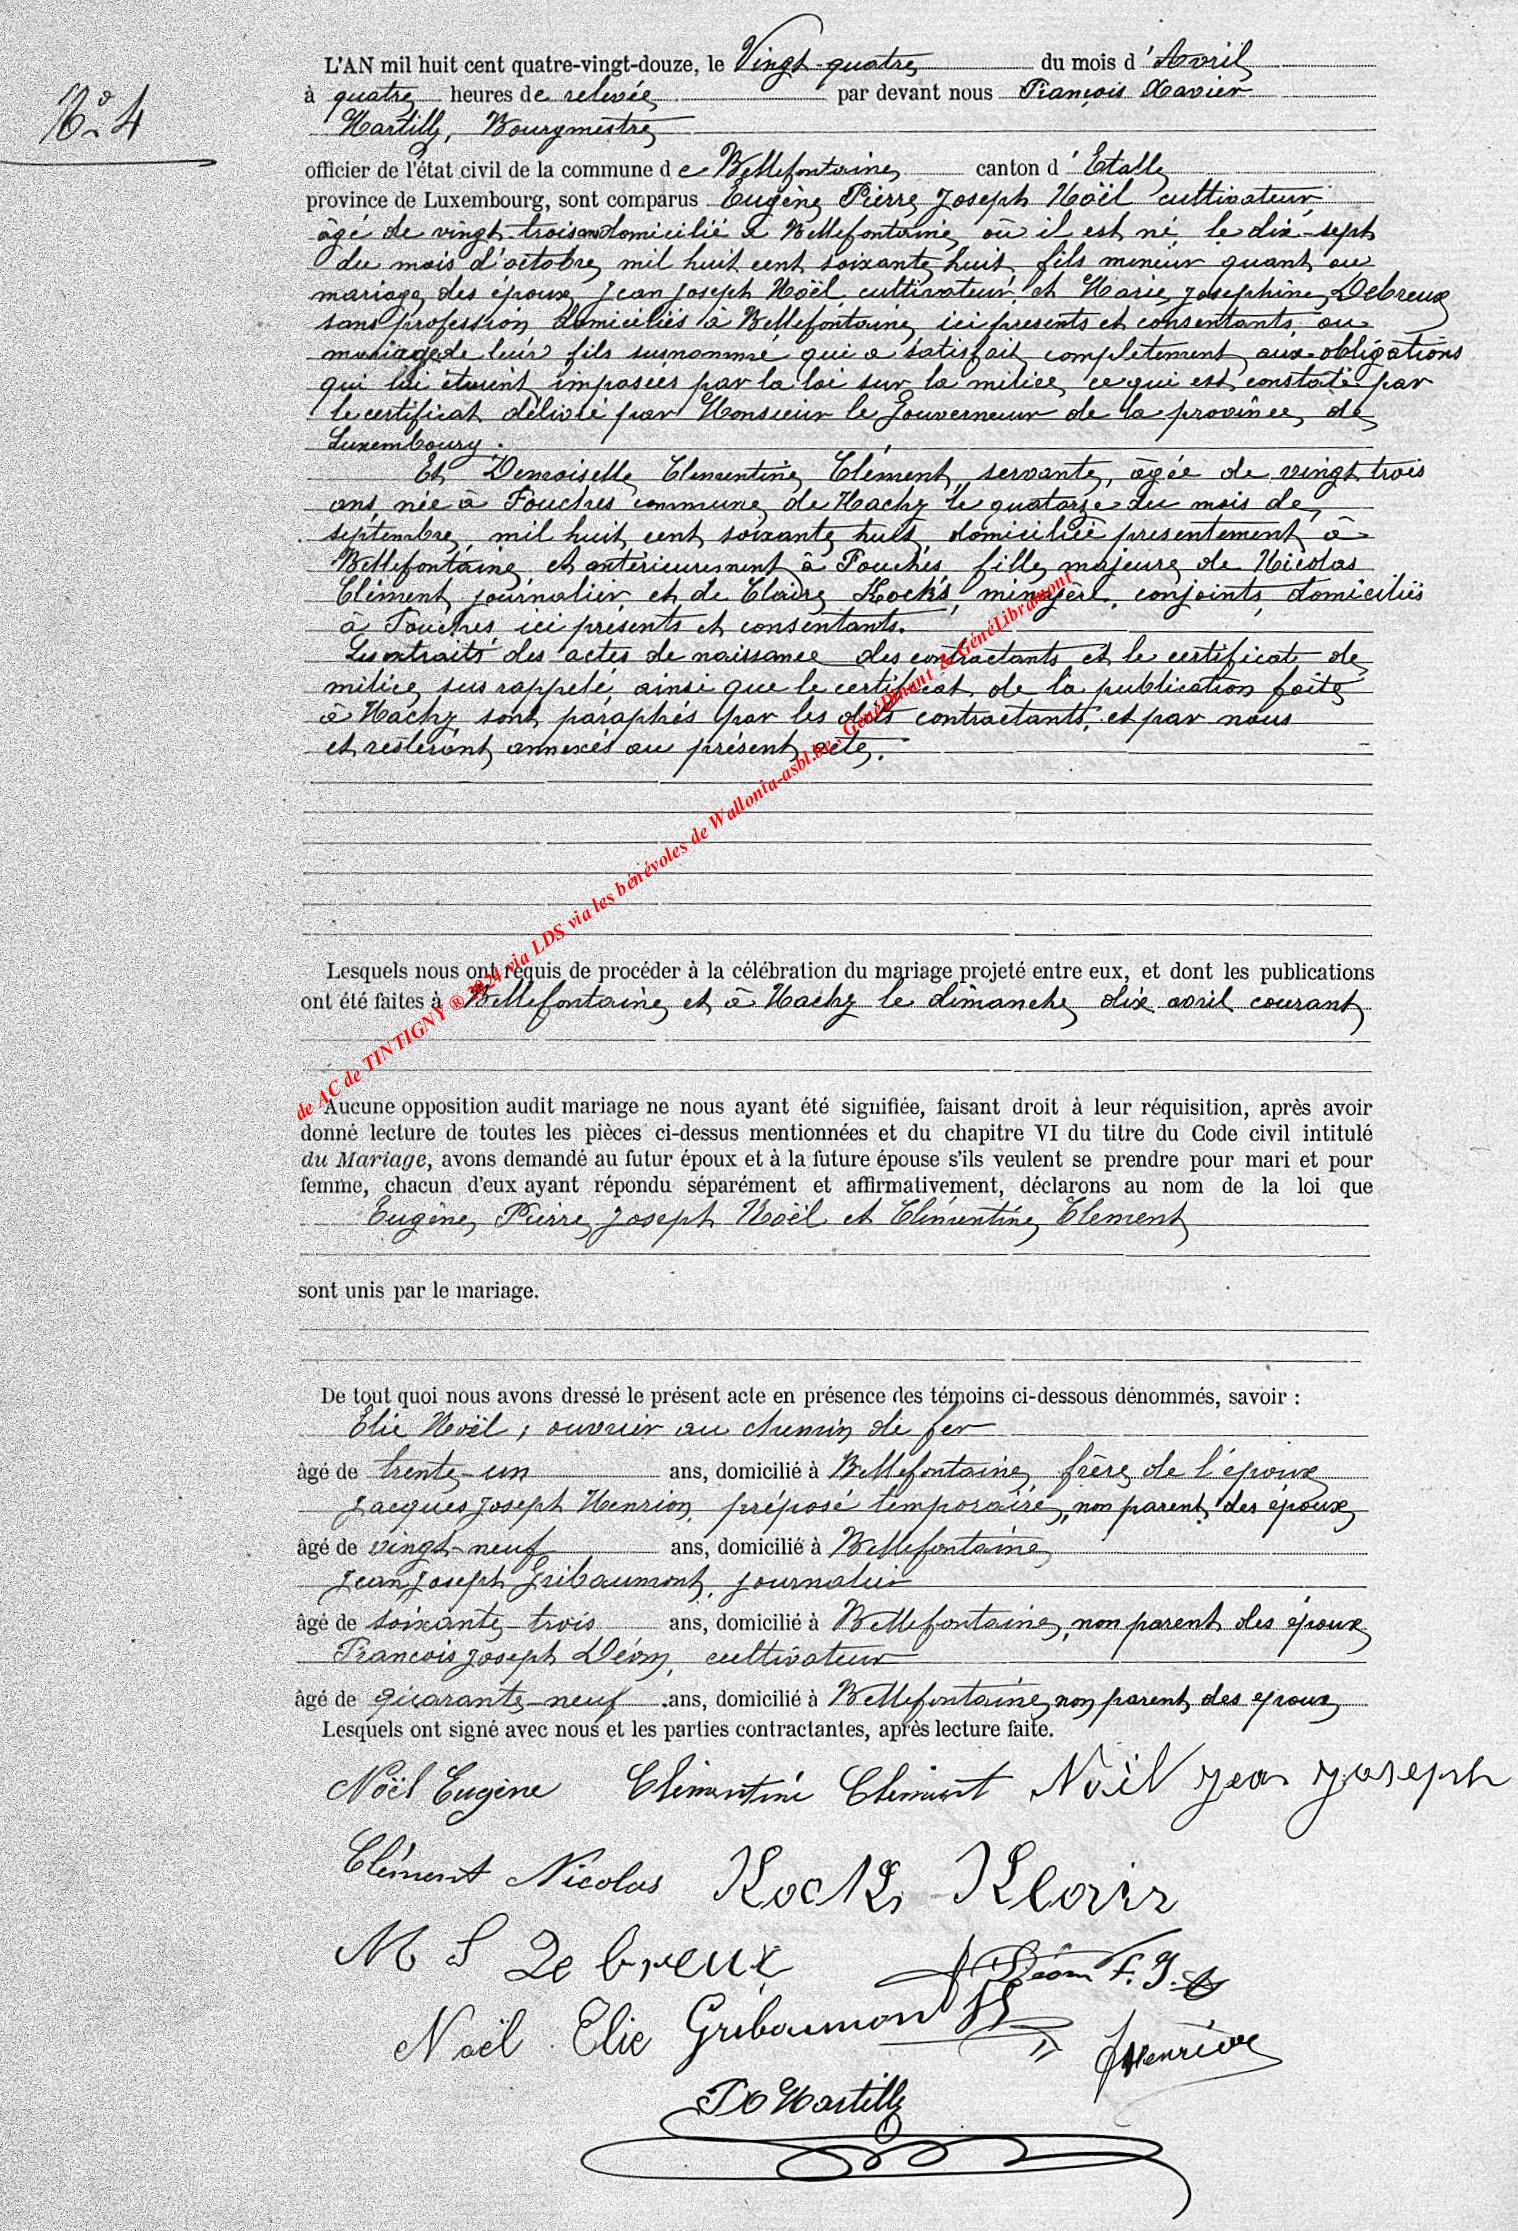 N° 4
L'AN mil huit cent quatre-vingt-douze, le Vingt-quatre du mois d'Avril
à quatre heures de relevée par devant nous François Xavier
Martilly, Bourgmestre
officier de l'état civil de la commune de Bellefontaine canton d'Etalle
province de Luxembourg, sont comparus Eugène Pierre Joseph Noël cultivateur
âgé de vingt-trois ans domicilié à Bellefontaine où il est né le dix-sept
du mois d'octobre mil huit cent soixante huit, fils mineur quant au
mariage des époux Jean Joseph Noël cultivateur, et Marie Josephine Debreux
sans profession domiciliés à Bellefontaine ici présents et consentants au
mariage de leur fils susnommé qui a satisfait complètement aux obligations
qui lui étaient imposées par la loi sur la milice, ce qui est constaté par
le certificat délivré par Monsieur le Gouverneur de la province de
Luxembourg.
Et Demoiselle Clementine Clément, servante, âgée de vingt trois
ans, née à Fouches commune de Hachy le quatorze du mois de
septembre mil huit cent soixante huit domiciliée présentement à
Bellefontaine et antérieurement à Fouches fille majeure de Nicolas
Clément journalier et de Claire Kocks, ménagère, conjoints, domiciliés
à Fouches, ici présents et consentants.
Les extraits des actes de naissance des contractants et le certificat de
milice sus rappelé ainsi que le certificat de la publication faite
à Hachy sont paraphés par les dits contractants et par nous
et resteront annexés au présent acte.
Lesquels nous ont requis de procéder à la célébration du mariage projeté entre eux, et dont les publications
ont été faites à Bellefontaine et à Hachy le dimanche dix avril courant
Aucune opposition audit mariage ne nous ayant été signifiée, faisant droit à leur réquisition, après avoir
donné lecture de toutes les pièces ci-dessus mentionnées et du chapitre VI du titre du Code civil intitulé
du Mariage, avons demandé au futur époux et à la future épouse s'ils veulent se prendre pour mari et pour
femme, chacun d'eux ayant répondu séparément et affirmativement, déclarons au nom de la loi que
Eugène Pierre Joseph Noël et Clémentine Clement
sont unis par le mariage.
De tout quoi nous avons dressé le présent acte en présence des témoins ci-dessous dénommés, savoir :
Elie Noël, ouvrier au chemin de fer
âgé de trente-un ans, domicilié à Bellefontaine frère de l'époux
Jacques Joseph Henrion, préposé temporaire, non parent des époux
âgé de vingt-neuf ans, domicilié à Bellefontaine
Jean Joseph Gribaumont, journalier
âgé de soixante-trois ans, domicilié à Bellefontaine, non parent des époux
François Joseph Déom, cultivateur
âgé de quarante-neuf ans, domicilié à Bellefontaine non parent des epoux
Lesquels ont signé avec nous et les parties contractantes, après lecture faite.
Noël Eugène Clémentine Clément Noël Jean Joseph
Clément Nicolas Kocks Klair
M J Debreux Déom F. J.
Noël Elie Gribaumont JJ JHenrion
FX Martilly
de AC de TINTIGNY ® 2024 via LDS via les bénévoles de Wallonia-asbl.be, GénéDinant & GénéLibramont